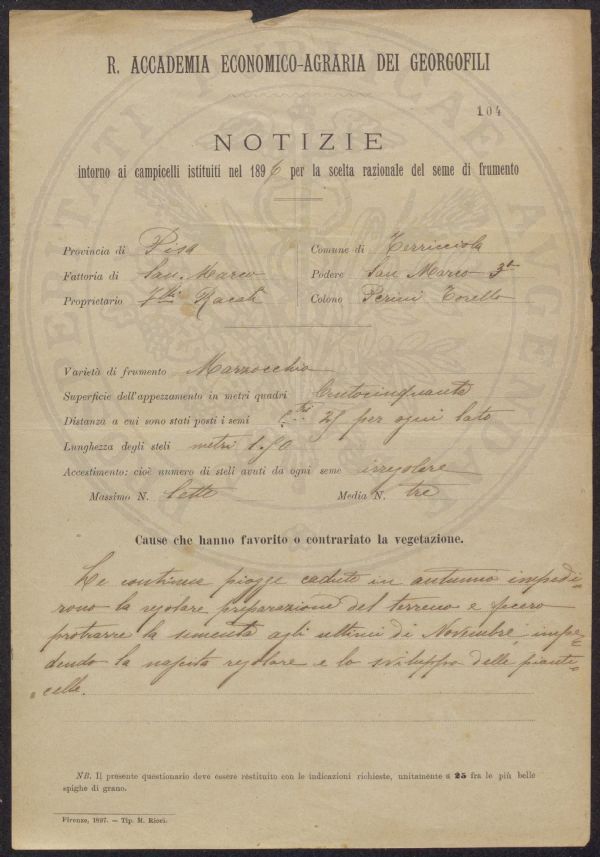 R. ACCADEMIA ECONOMICO-AGRARIA DEI GEORGOFILI
104
NOTIZIE
intorno ai campicelli istituiti nel 1896 per la scelta razionale del seme di frumento
Provincia di Pisa
Comune di Terricciola
Fattoria di San Marco
Podere San Marco 3º
Proprietario F.lli
Colono Perini Torello
Varietà di frumento Marzocchio
Superficie dell'appezzamento in metri quadri Centocinquanta
Distanza a cui sono stati posti i semi 25 per ogni lato
Lunghezza degli steli metri 1.50
Accestimento: cioè numero di steli avuti da ogni seme irregolare
Massimo N. Sette Media N. tre
Cause che hanno favorito o contrariato la vegetazione.
Le continue piogge cadute in autunno impedi=
rono la regolare preparazione del terreno e fecero
protrarre la sementa agli ultimi di Novembre impe=
dendo la nascita regolare e lo sviluppo delle pianti=
=celle.
NB. Il presente questionario deve essere restituito con le indicazioni richieste, unitamente a 25 fra le più belle
spighe di grano.
Firenze, 1897. — Tip. M. Ricci.